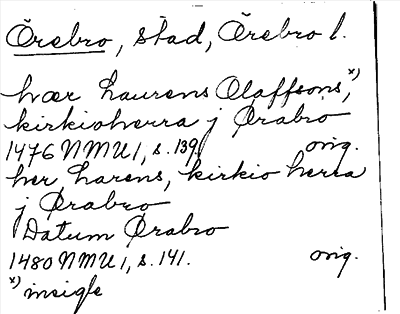 Örebro, stad, Örebro l.
hær Laurens Olaffsons, x)
kirkioherra j Ørabro
1476 NMU 1, s. 139 orig.
her Larens, kirkio herra
j Ørabro
Datum Ørabro
1480 NMU 1, s. 141. orig.
x) insigle